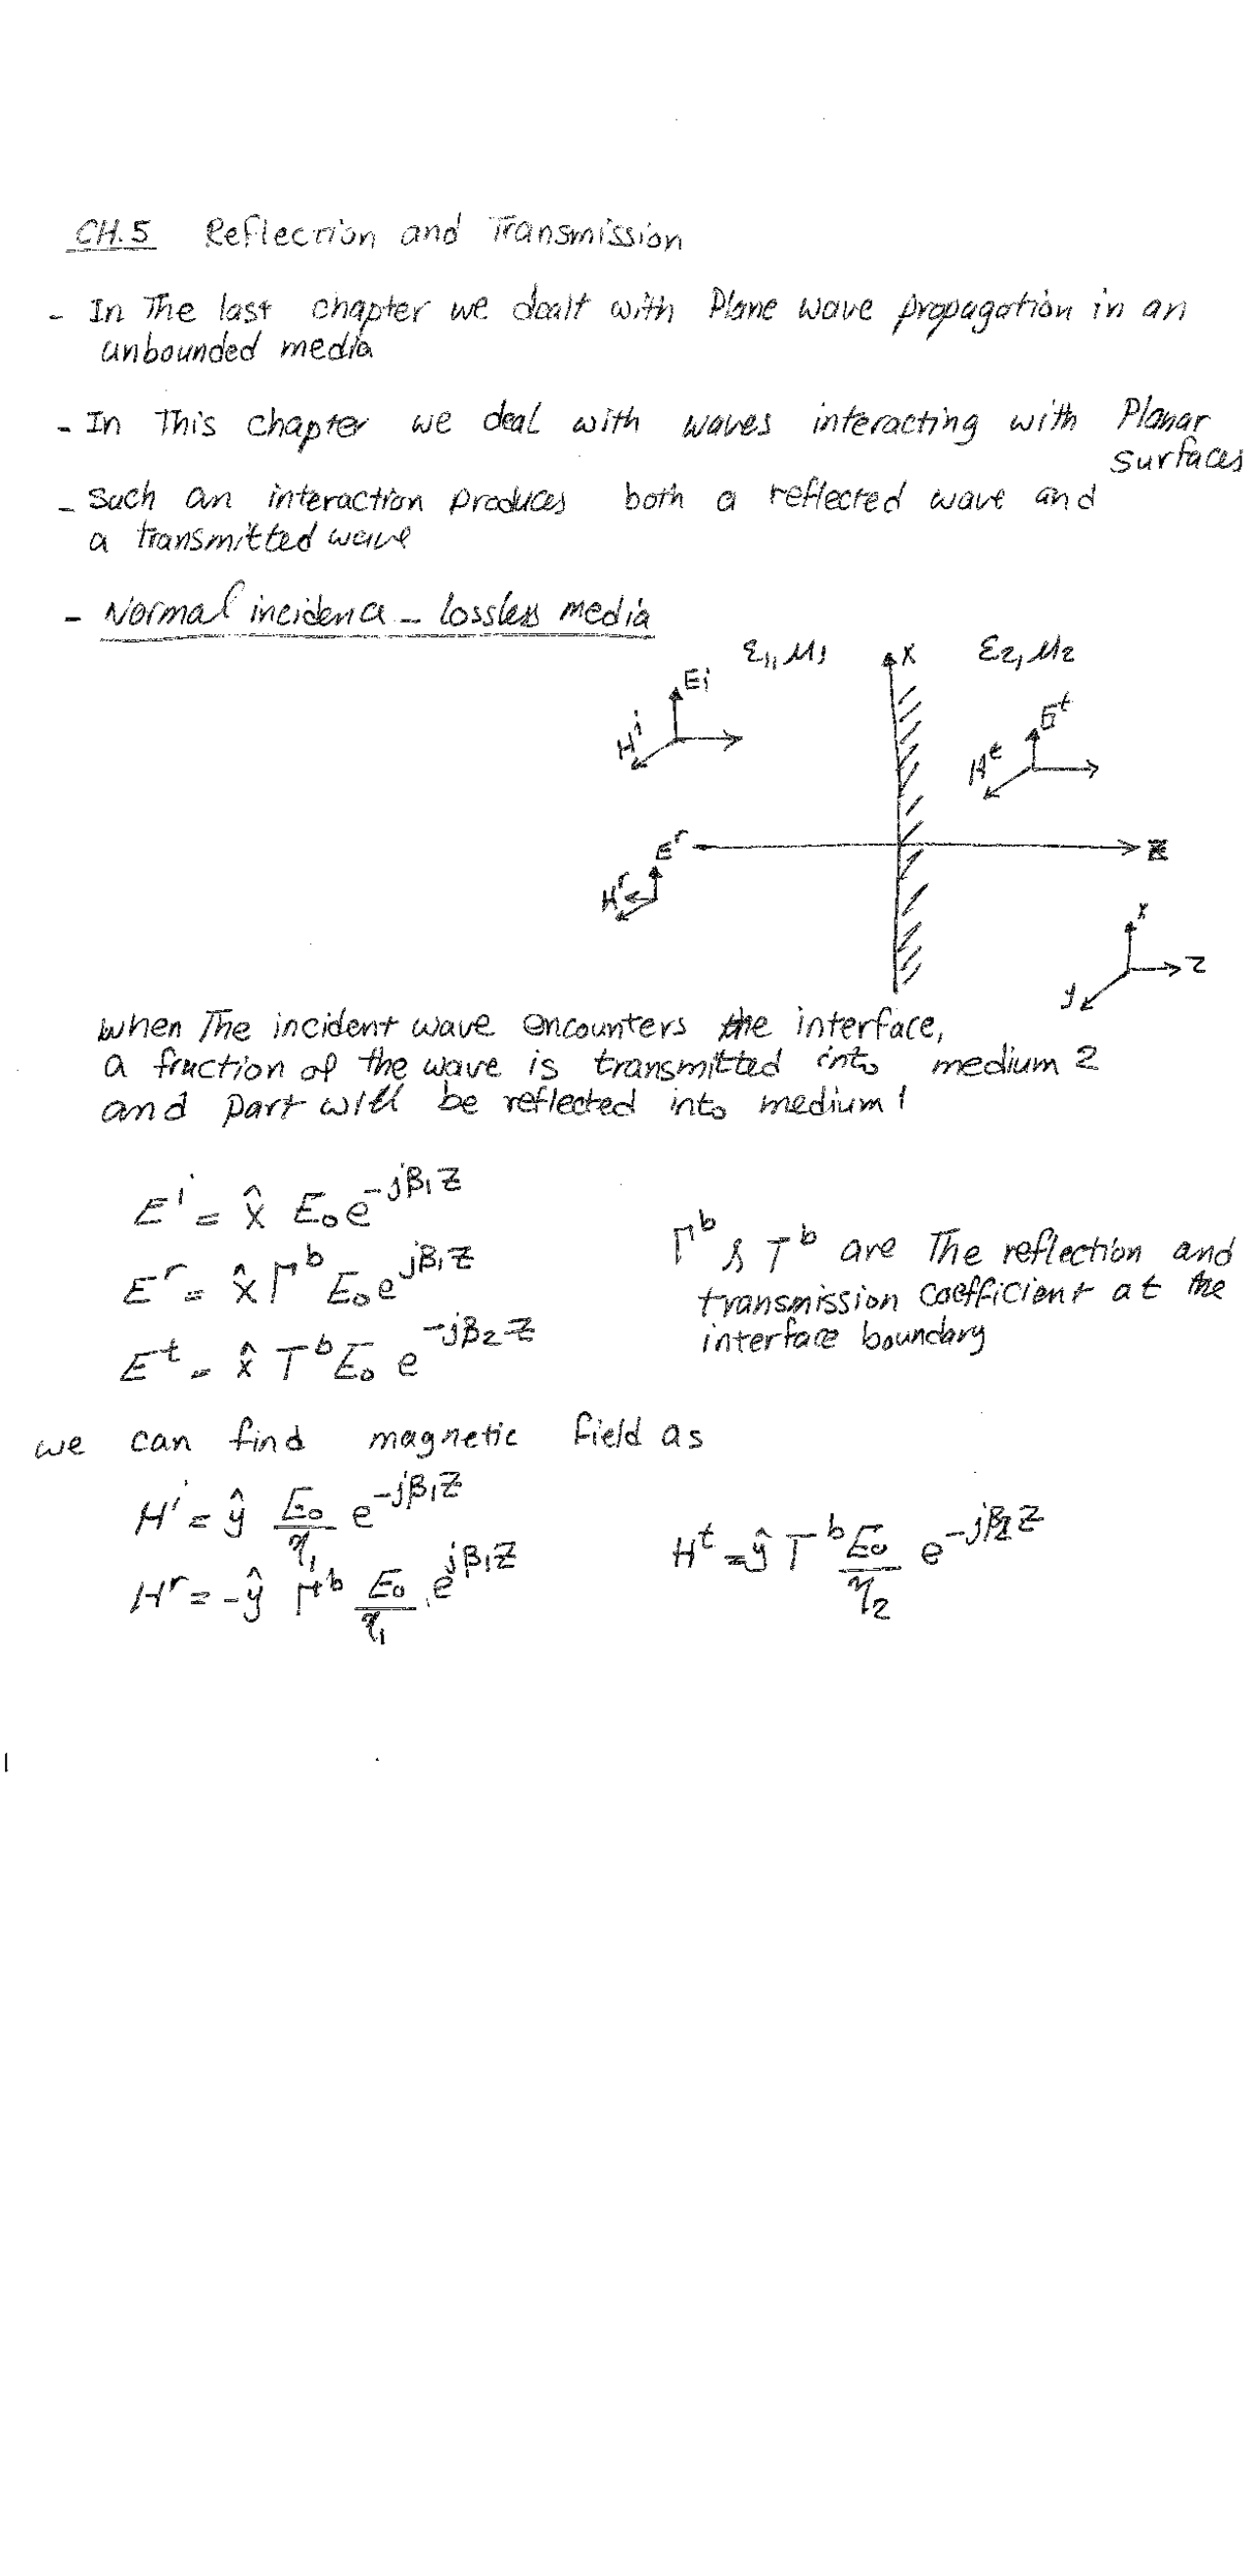 CH.5 Reflection and Transmission
- In The last chapter we dealt with Plane wave propagation in an
unbounded media
- In This chapter we deal with waves interacting with Planar
surfaces
- Such an interaction produces both a reflected wave and
a transmitted wave
- Normal incidence - lossless media
ε₁, μ₁ x ε₂, μ₂
Eⁱ
Hⁱ
Eᵗ
Hᵗ
Eʳ
z
Hʳ
x
z
y
when The incident wave encounters the interface,
a fraction of the wave is transmitted into medium 2
and part will be reflected into medium 1
Eⁱ = x̂ E₀ e^{-jβ₁z}
Eʳ = x̂ Γᵇ E₀ e^{jβ₁z}
Eᵗ = x̂ Tᵇ E₀ e^{-jβ₂z}
Γᵇ & Tᵇ are The reflection and
transmission coefficient at the
interface boundary
we can find magnetic field as
Hⁱ = ŷ E₀/η₁ e^{-jβ₁z}
Hʳ = -ŷ Γᵇ E₀/η₁ e^{jβ₁z}
Hᵗ = ŷ Tᵇ E₀/η₂ e^{-jβ₂z}